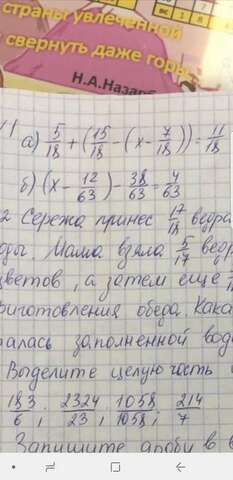 страны увлеченной
свернуть даже горы
Н.А.Назарб
а) 5/18 + (15/18 - (x - 7/18)) = 11/18
б) (x - 12/63) - 38/63 = 4/63
2 Сережа принес 17/18 ведра
оды. Мама взяла 5/17 вед
цветов, а затем еще
риготовления обеда. Кака
алась заполненной водо
Выделите целую часть
183/6 ; 2324/23 ; 1058/1058 ; 214/7
Запишите дробь в в